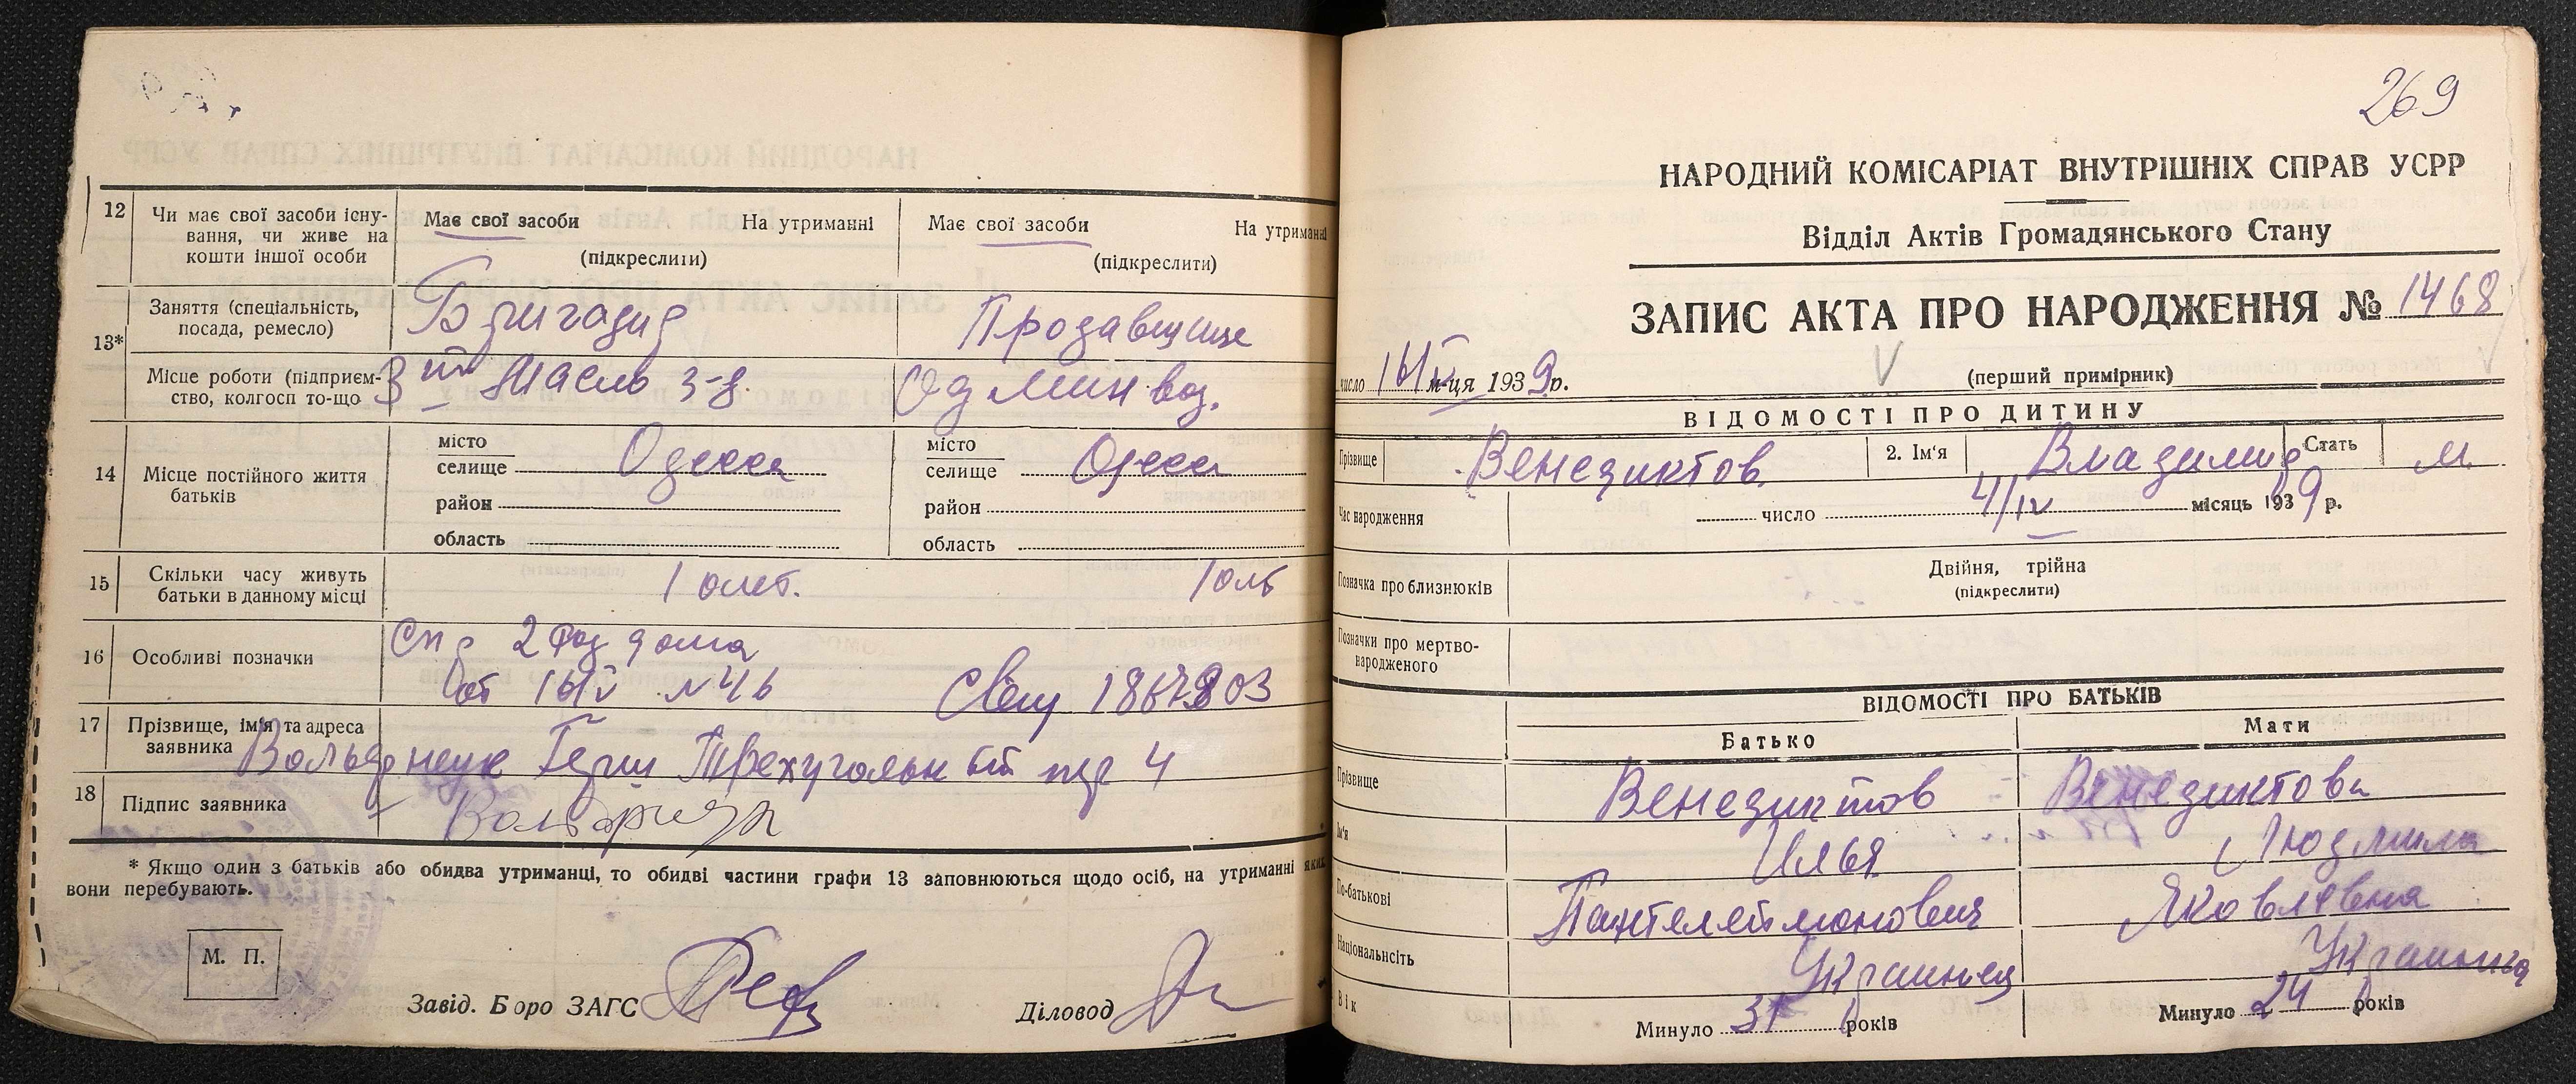 12
Чи має свої засоби існу-
вання, чи живе на
кошти іншої особи
Має свої засоби На утриманні
(підкреслити)
Має свої засоби На утриманні
(підкреслити)
13*
Заняття (спеціальність,
посада, ремесло)
Бригадир
Продавщица
Місце роботи (підприєм-
ство, колгосп то-що
Масло з-д.
14
Місце постійного життя
батьків
місто
селище Одесса
район
область
місто
селище Одесса
район
область
15
Скільки часу живуть
батьки в данному місці
10 лет.
10 лет
16
Особливі позначки
Спр 2 Род дома
от 16/IV №46
17
Прізвище, ім'я та адреса
заявника
Герш Трехугольный пер 4
18
Підпис заявника
* Якщо один з батьків або обидва утриманці, то обидві частини графи 13 заповнюються щодо осіб, на утриманні яких
вони перебувають.
М. П.
Завід. Бюро ЗАГС
Діловод
269
НАРОДНИЙ КОМІСАРІАТ ВНУТРІШНІХ СПРАВ УСРР
Відділ Актів Громадянського Стану
ЗАПИС АКТА ПРО НАРОДЖЕННЯ № 1468
число 16/IV м-ця 1939 р.
(перший примірник)
ВІДОМОСТІ ПРО ДИТИНУ
Прізвище
Венедиктов
2. Ім'я
Владимир
Стать
м.
Час народження
число 4/IV місяць 1939 р.
Позначка про близнюків
Двійня, трійна
(підкреслити)
Позначки про мертво-
народженого
ВІДОМОСТІ ПРО БАТЬКІВ
Батько
Мати
Прізвище
Венедиктов
Венедиктова
Ім'я
Илья
Людмила
По-батькові
Пантелеймонович
Яковлевна
Національність
Украинец
Украинка
Вік
Минуло 31 років
Минуло 24 років